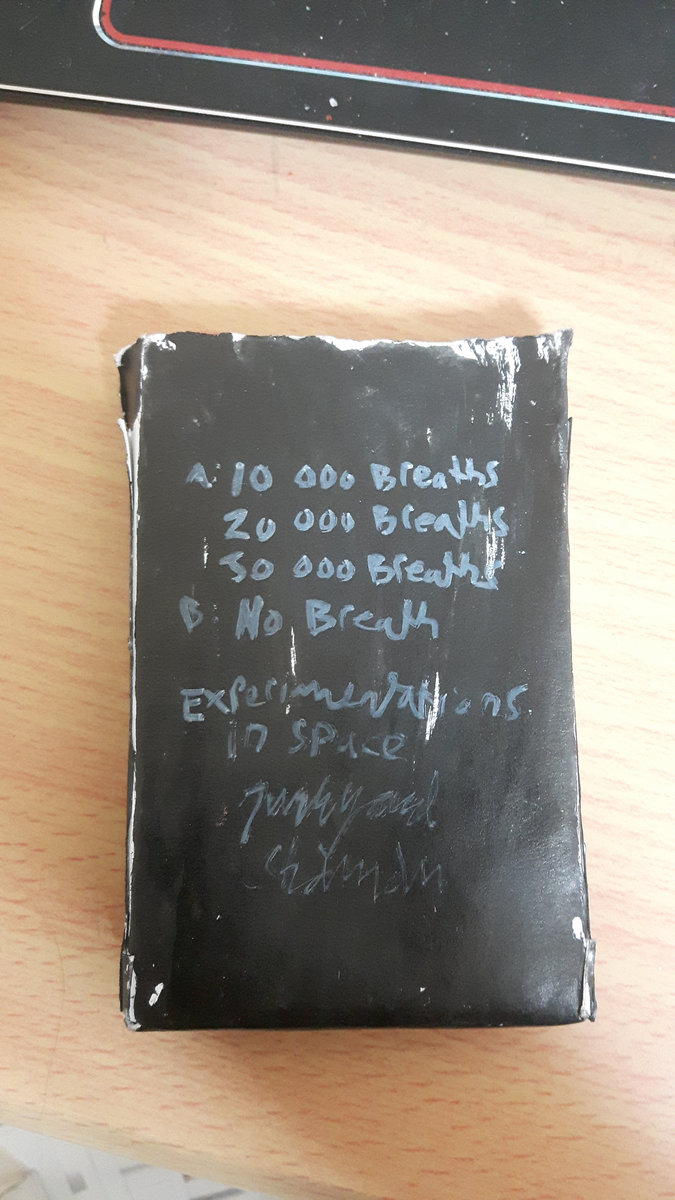 A: 10 000 Breaths
20 000 Breaths
30 000 Breaths
B: No Breath
Experimentations
in space
junkyard